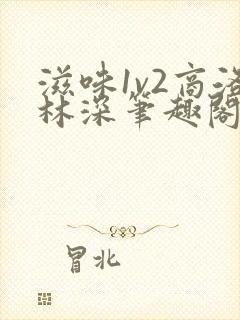 滋味1v2高洛
林深笔趣阁
冒北